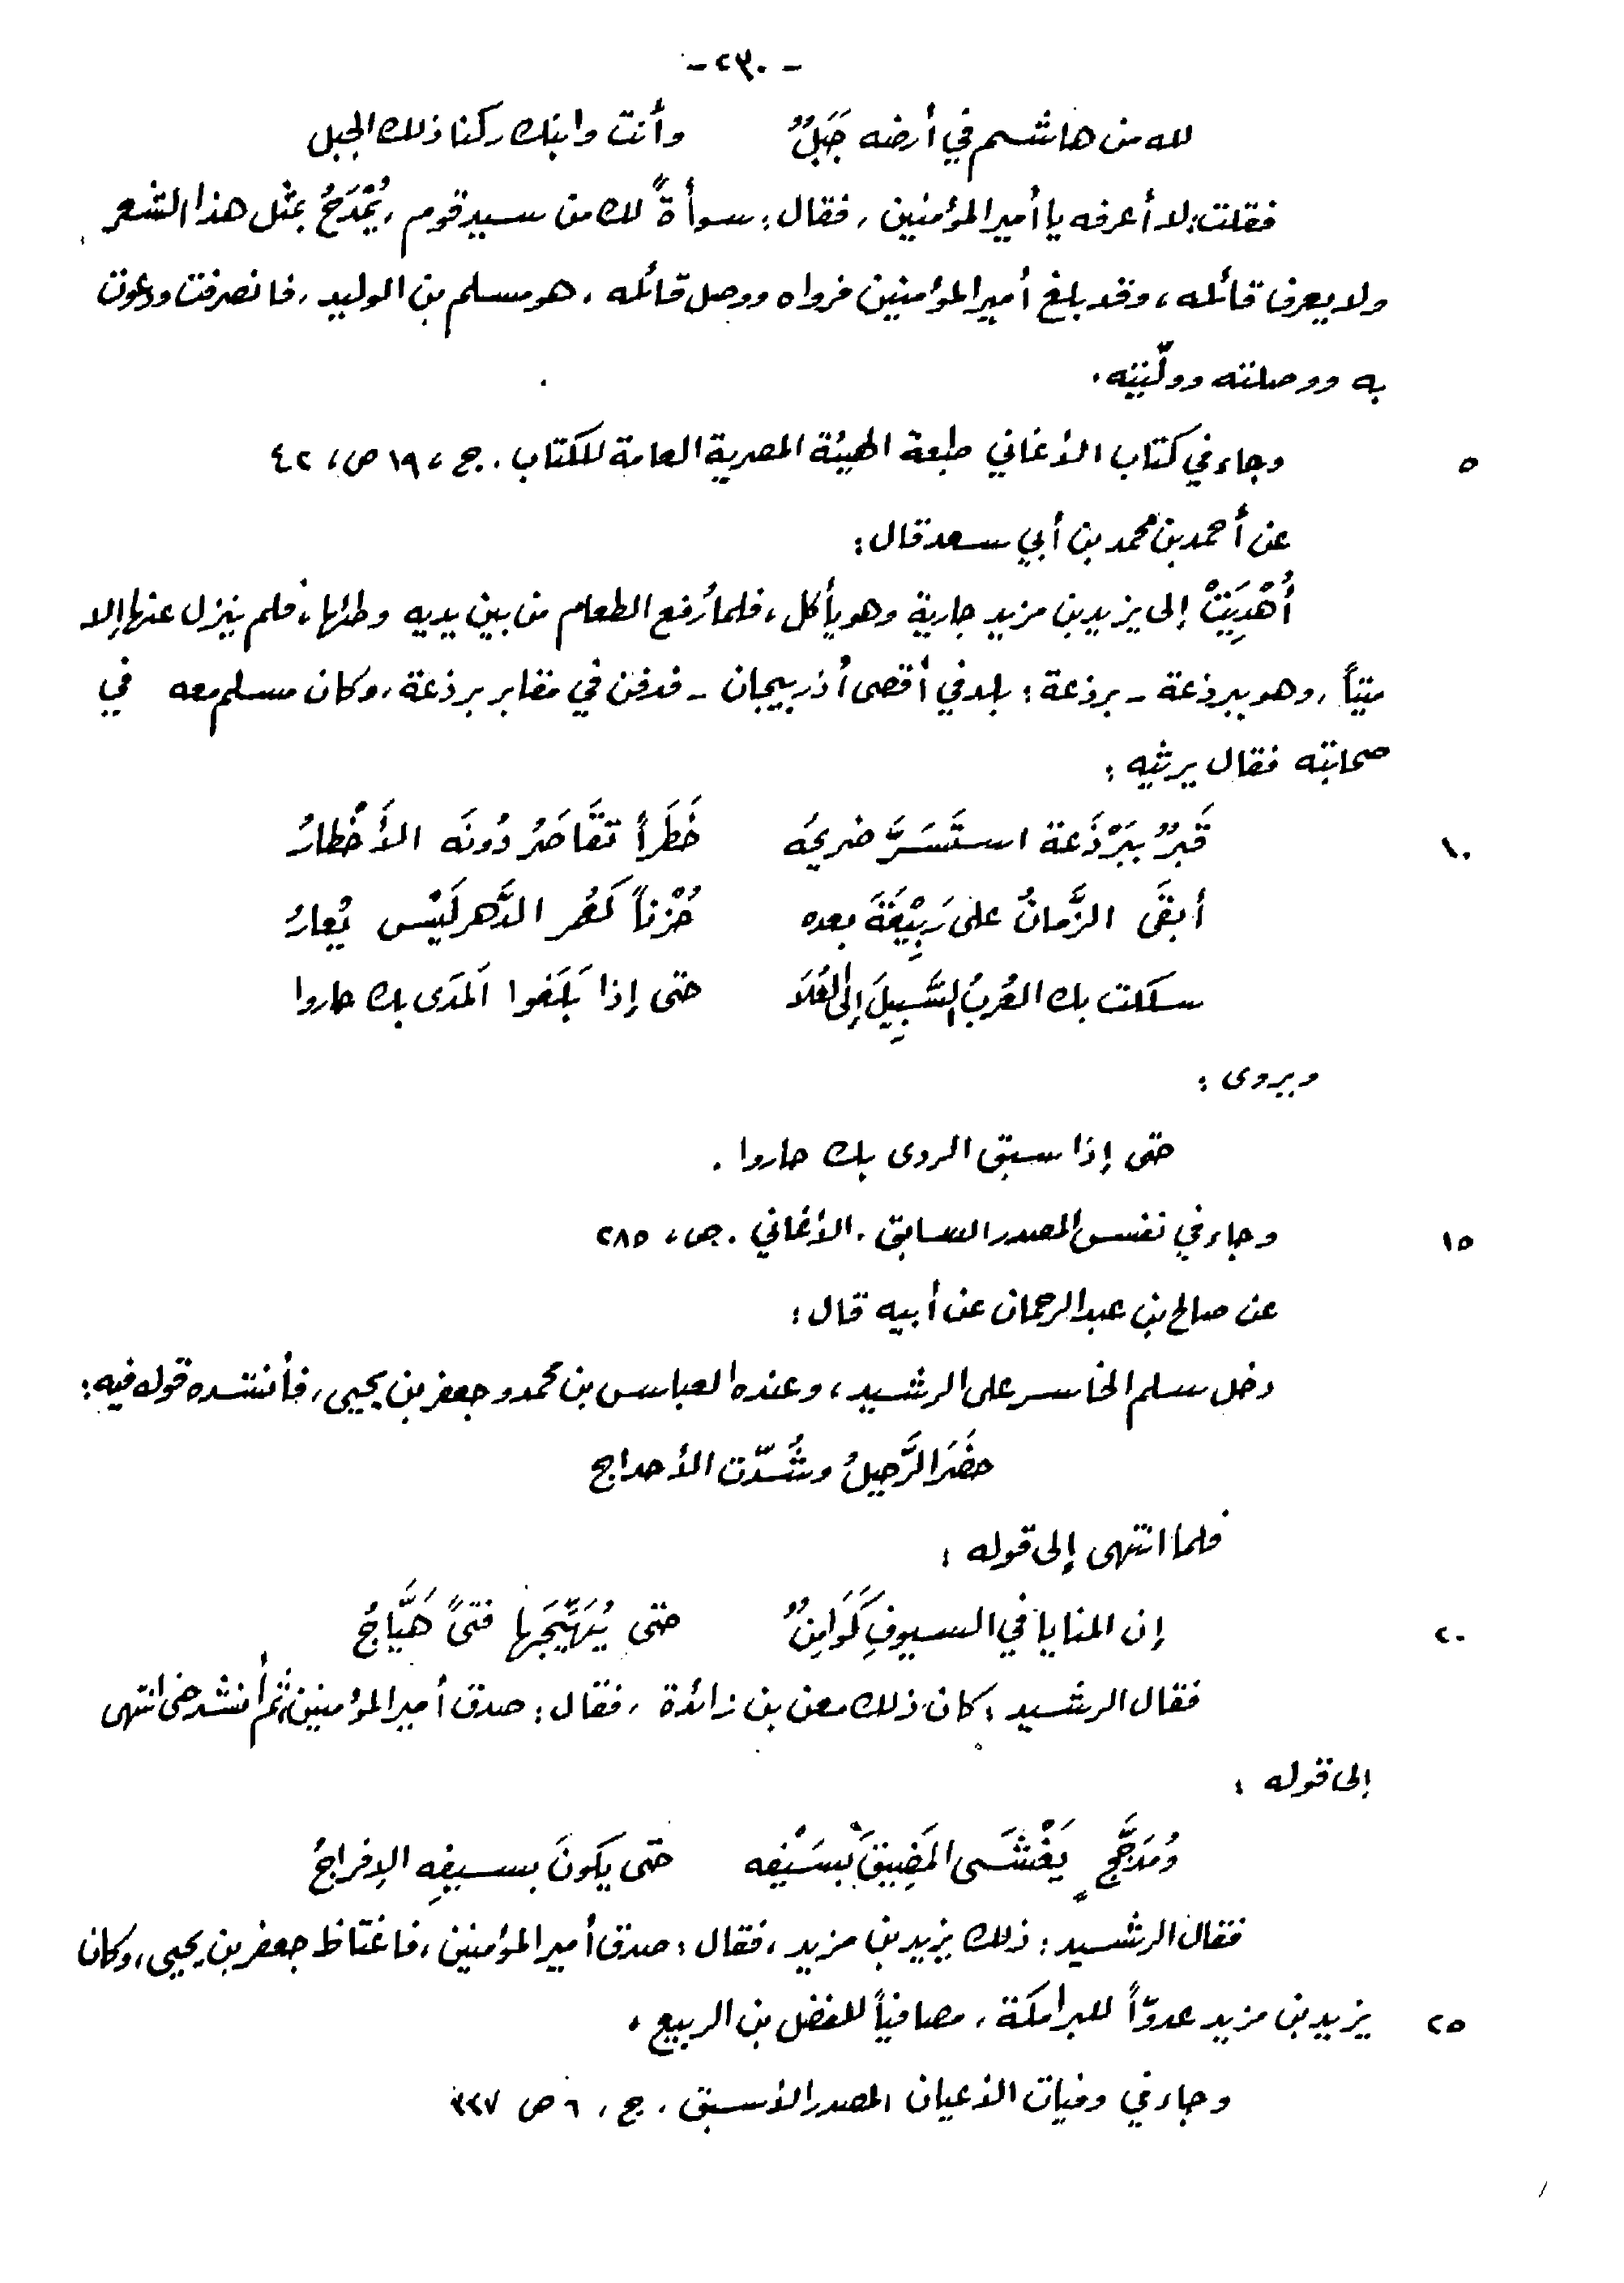 - ٢٣٠ -
لله من هاشم في أرضه جَبَلٌ وأنت وابنك ركنا ذلك الجبل
فقلت: لا أعرفه يا أمير المؤمنين، فقال: سوأةً لك من سيد قوم، يُمْدَحُ بمثل هذا الشعر
ولا يعرف قائله، وقد بلغ أمير المؤمنين فرواه ووصل قائله، هو مسلم بن الوليد، فانصرفت ودعوت
به ووصلته وولّيته.
٥ وجاء في كتاب الأغاني طبعة الهيئة المصرية العامة للكتاب. ج، ١٩ ص، ٤٢
عن أحمد بن محمد بن أبي سعد قال:
أُهْدِيَتْ إلى يزيد بن مزيد جارية وهو يأكل، فلما رُفع الطعام من بين يديه وطئها، فلم ينزل عنها إلا
ميتاً، وهو ببرذعة - برذعة: بلد في أقصى أذربيجان - فدفن في مقابر برذعة، وكان مسلم معه في
صحابته فقال يرثيه:
١٠ قَبرٌ بِبَرْذَعة استَسَرَّ ضريحُه خَطَراً تقَاصَرُ دُونَه الأَخْطارُ
أبقَى الزَّمانُ على رَبِيْعَةَ بعده حُزْناً كَعُمر الدَّهر لَيْس يُعارُ
سلكت بك العُربُ السَّبِيلَ إلى العُلاَ حتى إذا بَلَغوا المَدَى بك حاروا
ويروى:
حتى إذا سبق الردى بك حاروا.
١٥ وجاء في نفس المصدر السابق. الأغاني. ص، ٢٨٥
عن صالح بن عبد الرحمان عن أبيه قال:
دخل سلم الخاسر على الرشيد، وعنده العباس بن محمد وجعفر بن يحيى، فأنشده قوله فيه:
حضَرَ الرَّحيلُ وشُدّت الأحداج
فلما انتهى إلى قوله:
٢٠ إن المنايا في السيوفِ كَوَامِنٌ حتى يُهَيِّجَها فتىً هَيَّاجُ
فقال الرشيد: كان ذلك معن بن زائدة، فقال: صدق أمير المؤمنين، ثم أنشد حتى انتهى
إلى قوله:
ومُدَجَّجٍ يَغْشَى المَضِيقَ بسَيْفِه حتى يكونَ بسيفِه الإفراجُ
فقال الرشيد: ذلك يزيد بن مزيد، فقال: صدق أمير المؤمنين، فاغتاظ جعفر بن يحيى، وكان
٢٥ يزيد بن مزيد عدوّاً للبرامكة، مصافياً للفضل بن الربيع.
وجاء في وفيات الأعيان المصدر الأسبق، ج، ٦ ص ٣٣٧